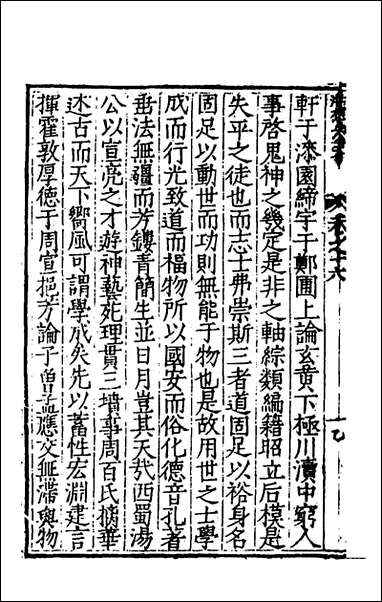 軒于漆園締宇于鄭圃上論玄黄下極川瀆中窮人
事啓鬼神之幾定是非之軸綜類編籍昭立后模是
失平之徒也而志士弗崇斯三者道固足以裕身名
固足以動世而功則無能于物也是故用世之士學
成而行光致道而福物所以國安而俗化德音孔者
垂法無疆而芳鏤青簡生並日月豈其天㢤西蜀湯
公以宣亮之才遊神藝苑理貫三墳事周百氏摛華
述古而天下嚮風可謂學成矣先以蓄性宏淵建言
揮霍敦厚德于周宣挹芳論于曽孟應交無滯輿物
卷之十六